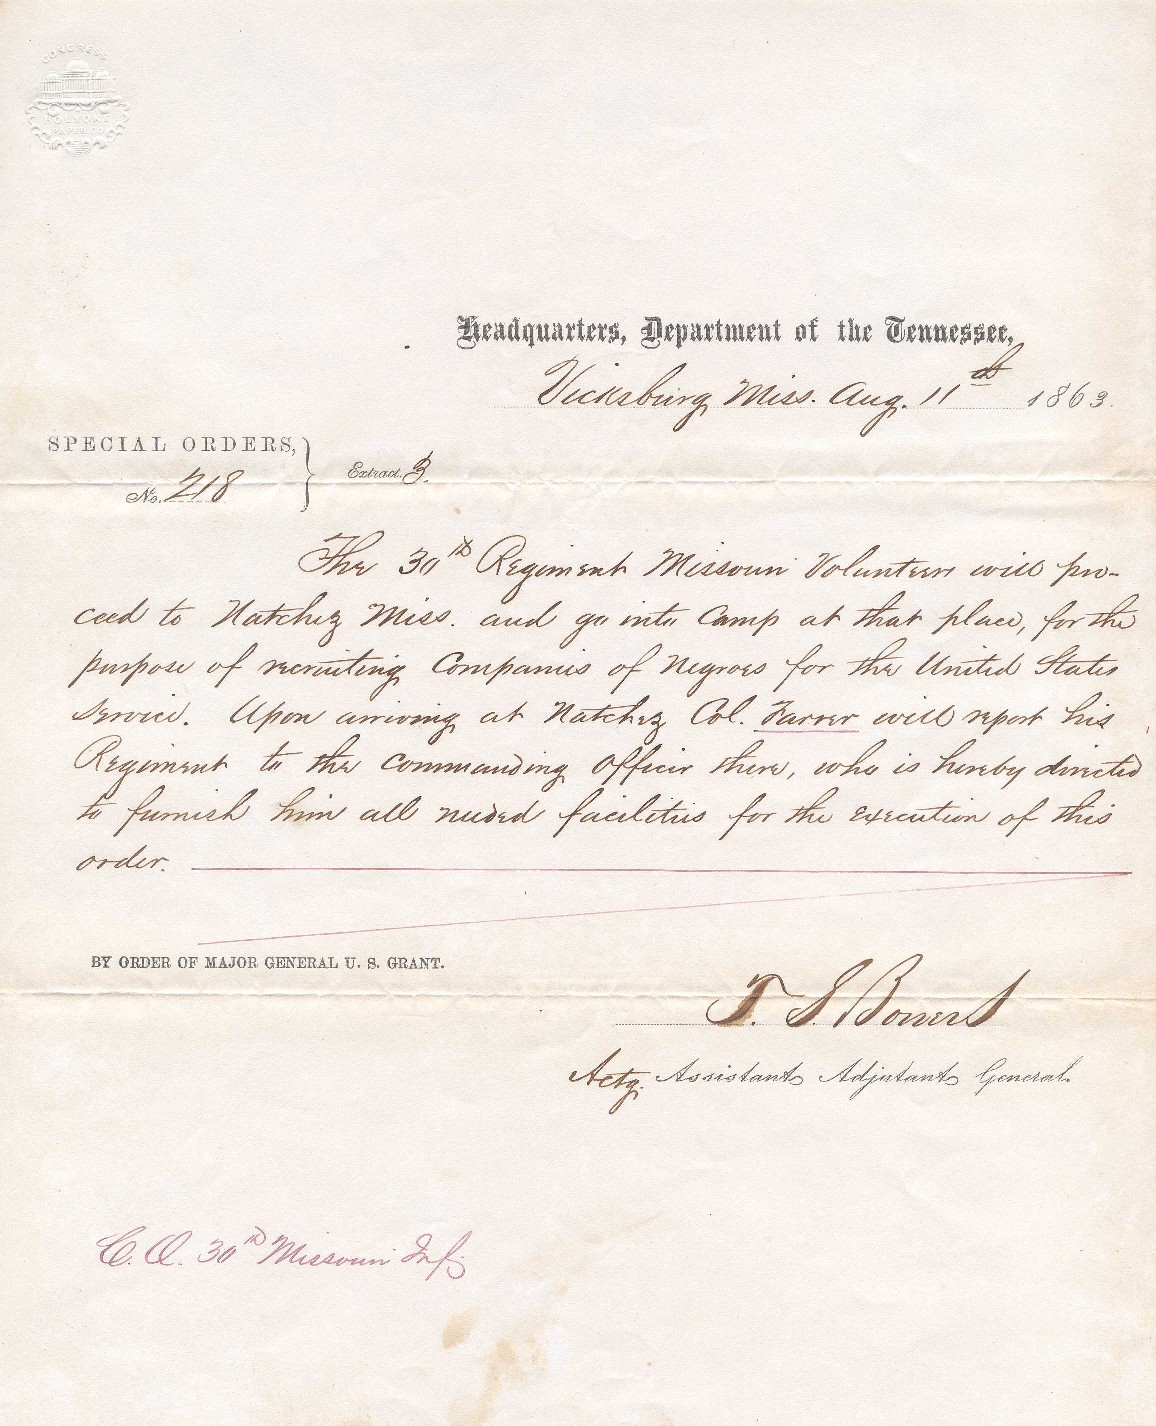 CONGRESS
HOLYOKE
PAPER CO
Headquarters, Department of the Tennessee,
Vicksburg Miss. Aug. 11th 1863.
SPECIAL ORDERS,
No. 218
Extract. 3.
The 30th Regiment Missouri Volunteers will pro-
ceed to Natchez Miss. and go into Camp at that place, for the
purpose of recruiting Companies of Negroes for the United States
service. Upon arriving at Natchez Col. Farrer will report his
Regiment to the Commanding Officer there, who is hereby directed
to furnish him all needed facilities for the execution of this
order.
BY ORDER OF MAJOR GENERAL U. S. GRANT.
T. S. Bowers
Actg. Assistant Adjutant General.
C. O. 30th Missouri Inf.